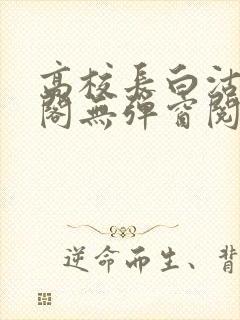 高校長白沽
閣無彈窗閱
逆命而生、背